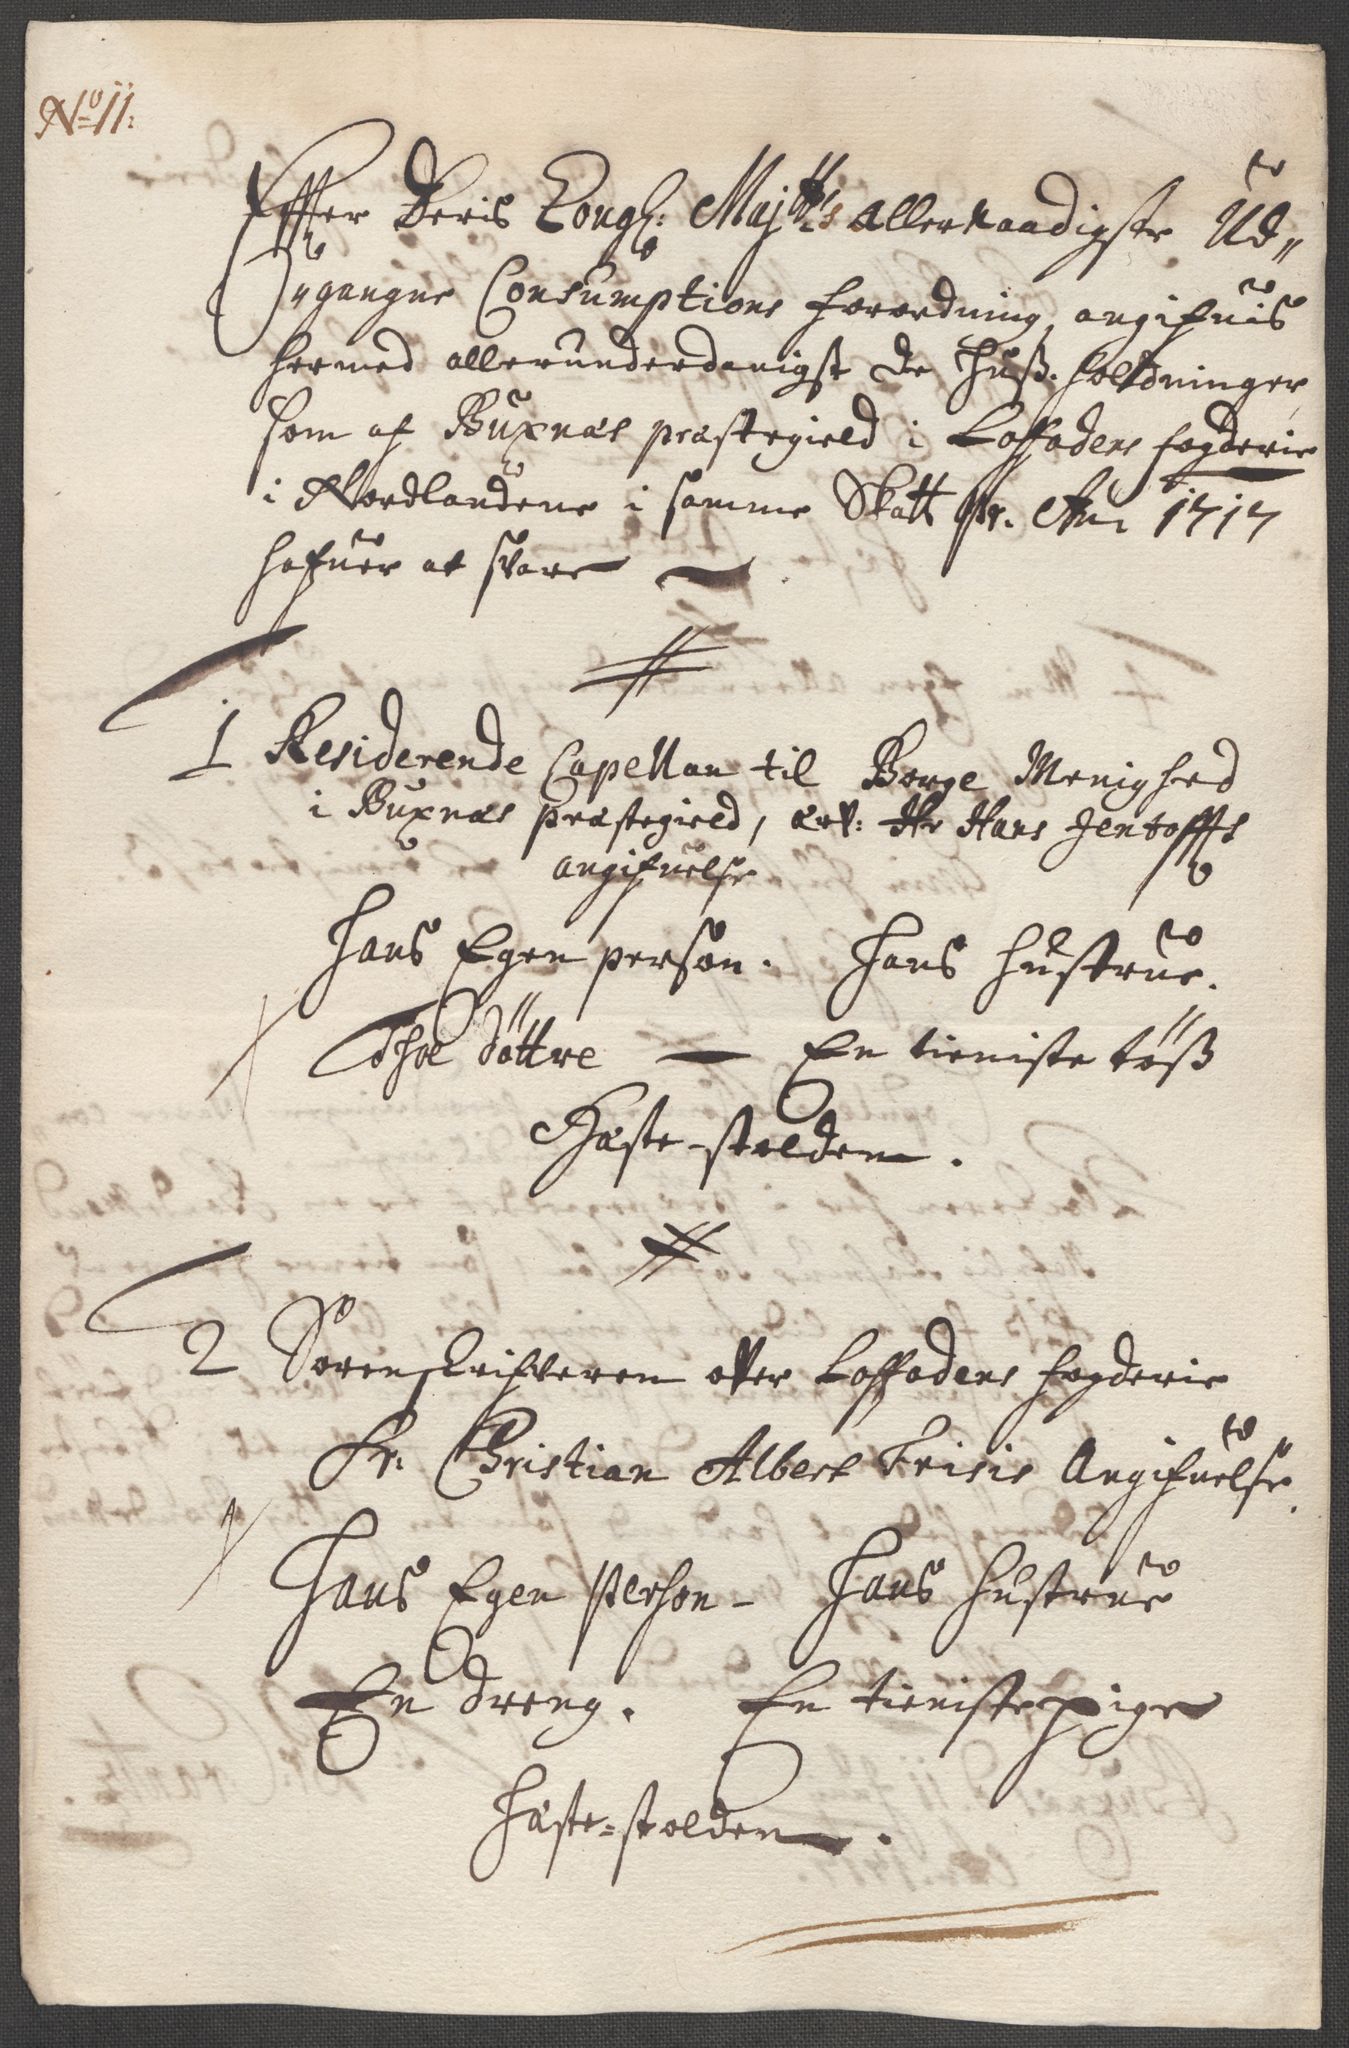 No 11:
Effter Deris Kongl: Maj:tts allernaadigste Ud„
gangne Consumptions forordning, angifuis
hermed allerunderdanigst de Huuß-holdninger,
som af Buxnæs præstegield i Loffodens fogderie
i Nordlandene i samme Skatt pr. An: 1717
hafuer at svare
1 Residerende Capellan til Borge Menighed
i Buxnæs præstegield, Hr Hans Jentofftz
angifuelse
Hans Egen person. Hans Hustrue.
Thoe döttre — En tieniste töß
Hæste-stolden.
2 Sorenskrifveren over Loffodens fogderie
Sr. Christian Albert Frisis Angifuelse.
Hans Egen Person - Hans Hustrue
En dreng. En tienistepige
Hæste-stolden.